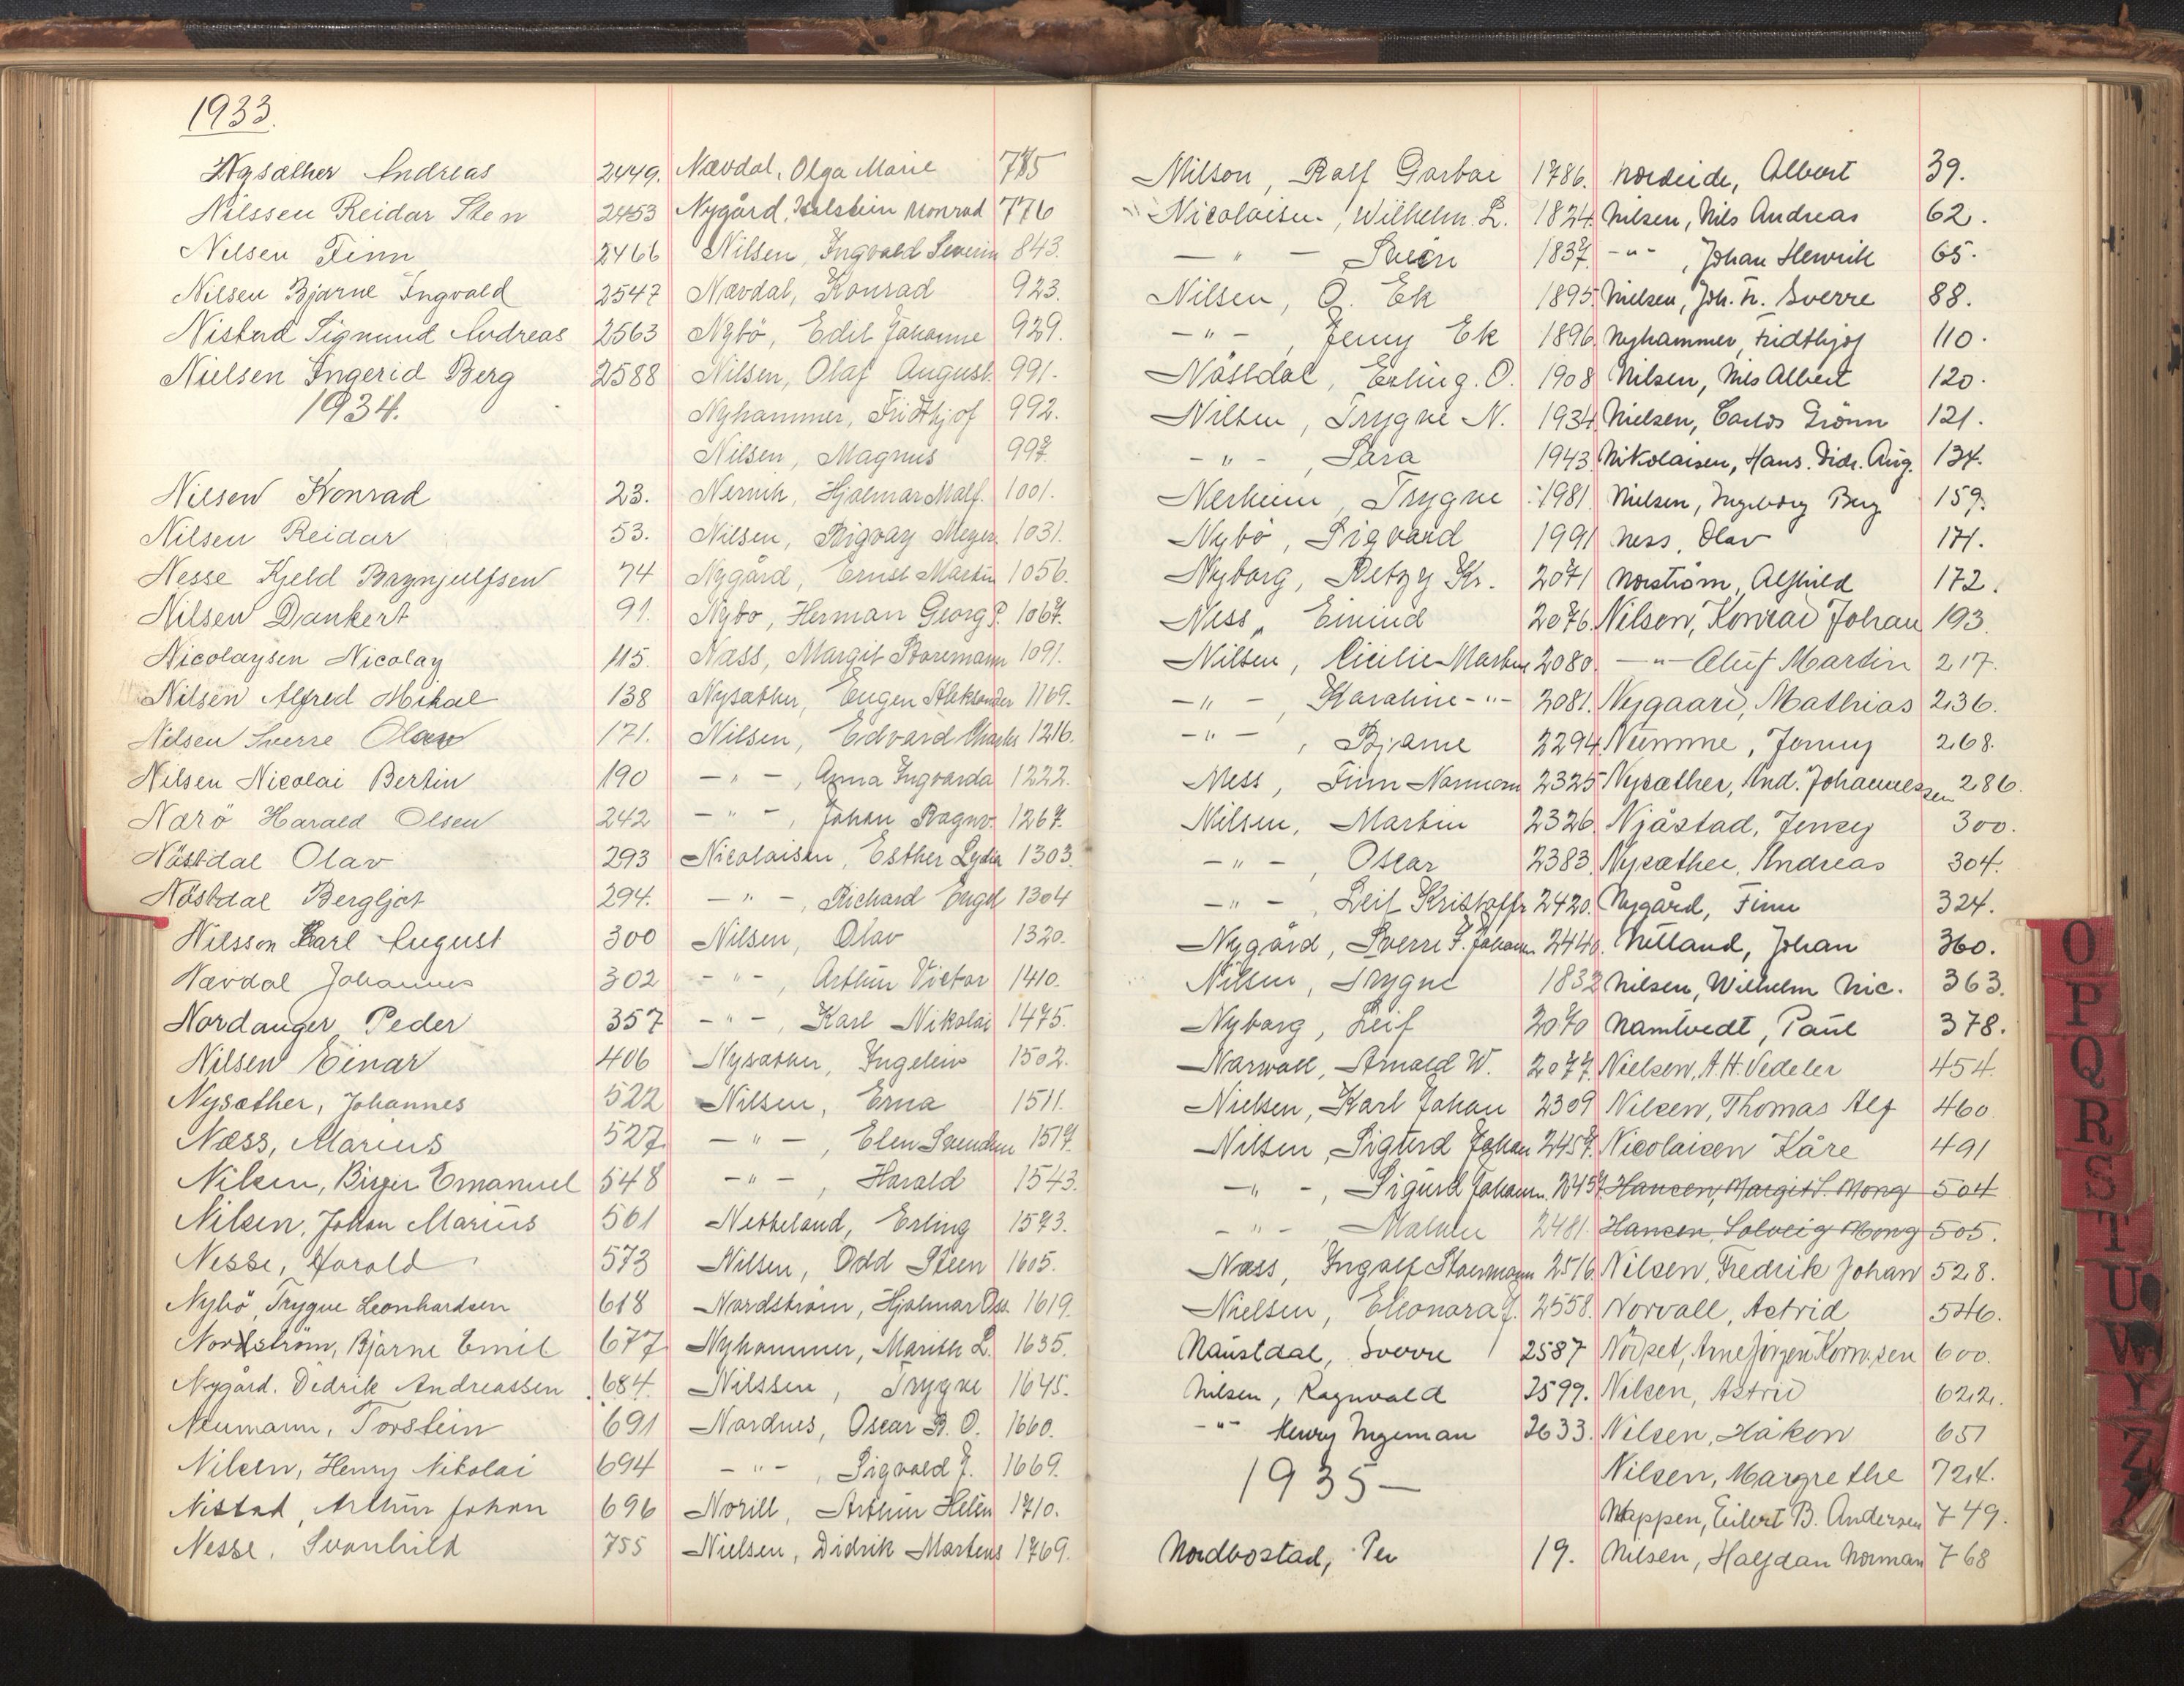 1933.
Nysæther Andreas 2449.
Nilssen Reidar Sten 2453
Nilsen Finn 2466
Nilsen Bjarne Ingvald 2547
Nistad Sigmund Andreas 2563
Nielsen Ingerid Berg 2588
1934.
Nilsen Konrad 23.
Nilsen Reidar 53.
Nesse Kjeld Brynjulfsen 74
Nilsen Dankert 91.
Nicolaysen Nicolay 115.
Nilsen Alfred Mikal 138
Nilsen Sverre Olav 171.
Nilsen Nicolai Bertin 190
Nærö Harald Olsen 242
Nästdal Olav 293
Nästdal Bergljot 294.
Nilsson Karl August 300
Nævdal Johannes 302
Nordanger Peder 357
Nilsen Einar 406
Nysæther, Johannes 522
Næss, Marius 527
Nilsen, Birger Emanuel 548
Nilsen, Johan Marius 561
Nesse, Harald 573
Nybö, Trygve Leonhardsen 618
Nordström, Bjarne Emil 677
Nygård. Didrik Andreassen 684.
Neumann, Torstein 691
Nilsen, Henry Nikolai 694
Nistad, Arthur Johan 696
Nesse, Svanhild 755
Nævdal, Olga Marie 775
Nygård, Halstein Monrad 776
Nilsen, Ingvald Severin 843.
Nævdal, Konrad 923.
Nybö, Edit Johanne 929.
Nilsen, Olaf August. 991.
Nyhammer, Fridthjof 992.
Nilsen, Magnus 997.
Hjalmar 1001.
Nilsen, Meyer 1031.
Nygård, Ernst Martin 1056.
Nybö, Herman Georg P. 1067.
Næss, Margit 1091.
Nysæther, Eugen Aleksander 1169.
Nilsen, Edvard Charles 1216.
- " - , Anna Ingvarda 1222.
- " - , Johan Ragnv. 1267.
Nicolaisen, Esther Lydia 1303.
- " - , Richard Engel 1304
Nilsen, Olav 1320.
- " - , Arthur Victor 1410.
- " - , Karl Nikolai 1475.
Nysæther, Ingelein 1502.
Nilsen, Erna 1511.
- " - , Elen 1517.
- " - , Harald 1543.
Netteland, Erling 1573.
Nilsen, Odd Steen 1605.
Nordström, Hjalmar Osc. 1619.
Nyhammer, Marith L. 1635.
Nilssen, Trygve 1645.
Nordnes, Oscar B. O. 1660.
- " - , Sigvald J. 1669.
Norill, Arthur Helen 1710.
Nielsen, Didrik Martens 1769.
Nilson, Ralf Garbai 1786.
Nicolaisen, Wilhelm L. 1824.
- " - Svein 1837.
Nilsen, O. Ek 1895.
- " - , Jenny Ek 1896.
Nästdal, Erling. O. 1908
Nilsen, Trygve N. 1934.
- " - , Sara 1943.
Nerheim, Trygve 1981.
Nybö, Sigvard 1991
Nyborg, Betzy Kr. 2071
Ness, Eivind 2076.
Nilsen, Cicilie Marthe 2080.
- " - , Karoline - " - 2081.
- " - , Bjarne 2294
Ness, Finn Normann 2325
Nilsen, Martin 2326.
- " - , Oscar 2383.
- " - , Leif Kristoffr 2420.
Nygård, Sverre F. Johann 2440.
Nilsen, Trygve 1832
Nyborg, Leif 2070
Narwall, Arnold W. 2077.
Nielsen, Karl Johan 2309
Nilsen, Sigurd Johan 2457.
- " - , Sigurd Johann. 2457
- " - , 2481.
Næss, Ingolf Stoermann 2516.
Nielsen, Eleonora J. 2558.
Naustdal, Sverre 2587
Nilsen, Ragnvald 2599.
- " - Henry Ingeman 2633.
1935 —
Nordbostad, Per 19.
Nordeide, Albert 39.
Nilsen, Nils Andreas 62.
- " - , Johan Henrik 65.
Nielsen, Joh. N. Sverre 88.
Nyhammer, Fridthjof 110.
Nilsen, Nils Albert 120.
Nielsen, Carlos Grönn 121.
Nikolaisen, Hans. Didr. Aug. 134.
Nielsen, Ingeborg Berg 159.
Ness, Olav 171.
Norström, Alfhild 172.
Nilsen, Konrad Johan 193.
- " - Oluf Martin 217.
Nygaard, Mathias 236.
Numme, Jenny 268.
Nysæther, And. Johannessen 286.
Njåstad, Jenny 300.
Nysæther, Andreas 304.
Nygård, Finn 324.
Netland, Johan 360.
Nilsen, Wilhelm Nic. 363.
Namtvedt, Paul 378.
Nielsen, A. H. Vedeler 454.
Nilsen, Thomas Alf 460
Nicolaisen Kåre 491
Hansen, Margit S. Mong 504
Hansen, Solveig Mong 505.
Nilsen, Fredrik Johan 528.
Norvall, Astrid 546.
600.
Nilsen, Astrid 622.
Nilsen, Håkon 651
Nilsen, Margrethe 724.
Nappen, Eilert B. Andersen 749.
Nilsen, Halfdan Norman 768
O
P
Q
R
S
T
U
W
Y
Z